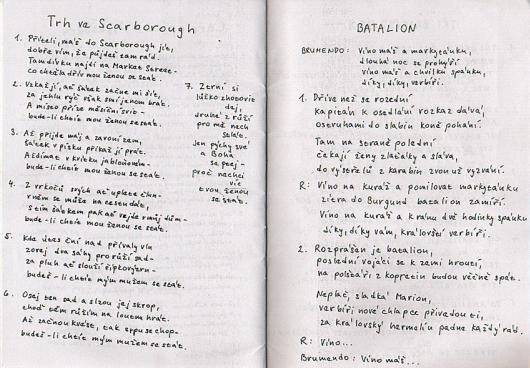 Trh ve Scarborough
1. Příteli, máš do Scarborough jít,
dobře vím, že půjdeš tam rád.
Tam dívku najdi na Market Street
co chtěla dřív mou ženou se stát.
2. Vzkaž jí, ať šátek začne mi šít,
za jehlu rýč však smí jenom brát.
A místo příze měsíční svit -
- bude-li chtít mou ženou se stát.
3. Až přijde máj a zavoní zem,
šátek v písku přikaž jí prát.
A ždímat v kvítku jabloňovém -
- bude-li chtít mou ženou se stát.
4. Z vrkočů svých ať uplete člun -
v něm se může na cestu dát,
s tím šátkem pak ať vejde v můj dům -
- bude-li chtít mou ženou se stát.
5. Kde útes ční nad přívaly vln
zorej dva sáhy pro růží sad -
za pluh ať slouží šípkový trn -
budeš-li chtít mým mužem se stát.
6. Osej ten sad a slzou jej skrop,
choď těm růžím na loutnu hrát.
Až začnou kvést, tak srpu se chop -
budeš-li chtít mým mužem se stát.
7. Z trní si
lůžko zhotovit
dej,
druhé z růží
pro mě nech
stlát.
Jen pýchy své
a Boha
se ptej -
proč nechci
víc
tvou ženou
se stát.
BATALION
BRUMENDO: Víno máš a markytánku,
dlouhá noc se prohýří
víno máš a chvilku spánku,
díky, díky, verbíři.
1. Dříve než se rozední
kapitán k osedlání rozkaz dává,
ostruhami do slabin koně pohání.
Tam na straně polední
čekají ženy zlaťáky a sláva,
do výstřelů z karabin zvon už vyzvání.
R: Víno na kuráž a pomilovat markytánku
zítra do Burgund batalion zamíří.
Víno na kuráž a k ránu dvě hodinky spánku
díky, díky vám, královští verbíři.
2. Rozprášen je batalion,
poslední vojáci se k zemi hroutí,
na polštáři z kopretin budou věčně spát.
Neplač, sladká Marion,
verbíři nové chlapce přivedou ti,
za královský hermelín padne každý rád.
R: Víno...
Brumendo: Víno máš...